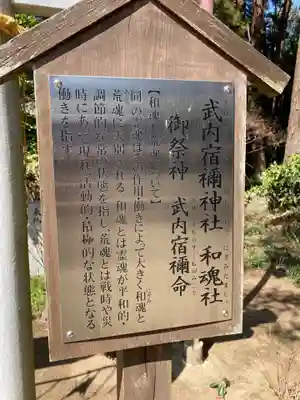 武内宿禰神社 和魂社
にぎみたましゃ
御祭神 武内宿禰命
【和魂・荒魂について】
同一の霊魂はその作用働きによって大きく和魂と
荒魂に大別される。和魂とは霊魂が平和的・
調節的な常の状態を指し、荒魂とは戦時や災
時にあって現れ、活動的・積極的な状態となる
働きを指す。